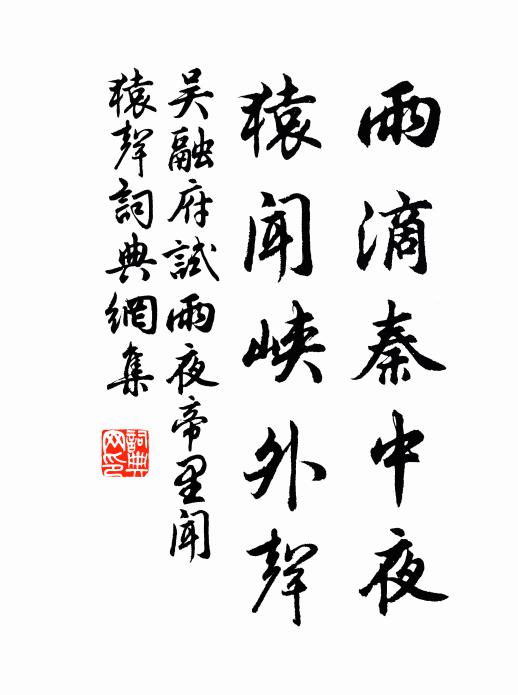 雨滴秦中夜
猿聞峽外聲
吳融府試雨夜帝里聞
猿聲詞典網集
詞典
网印